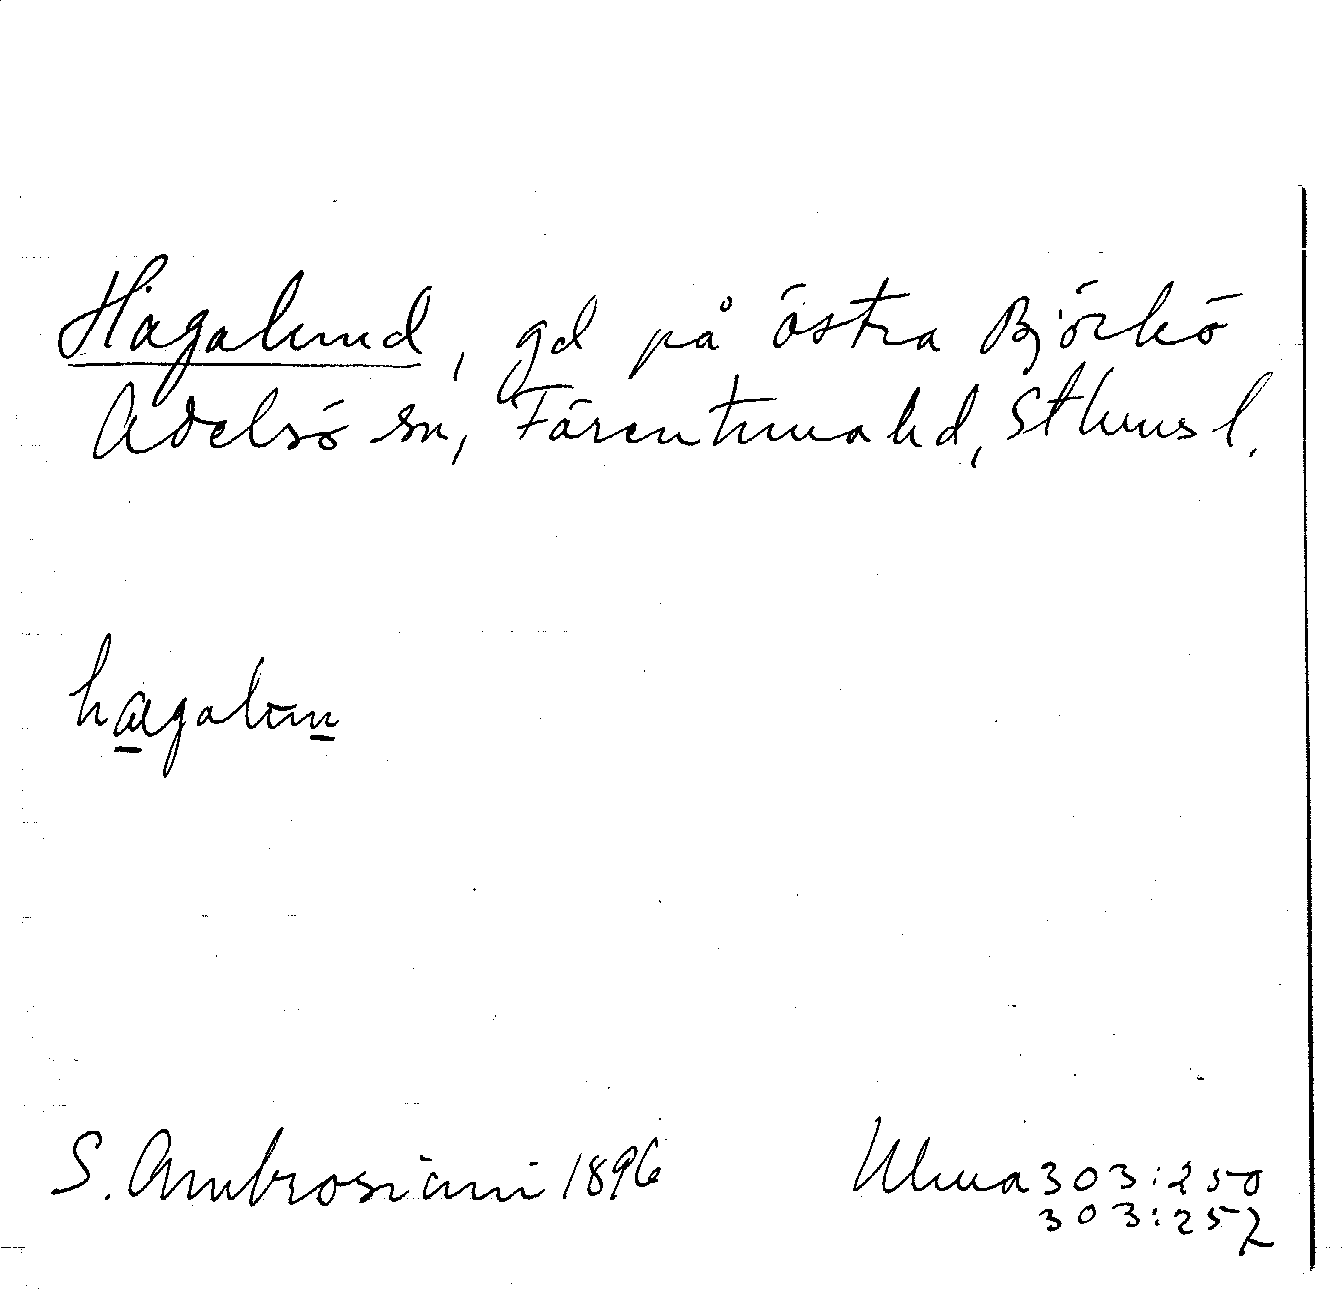 Hagalund, gd på östra Björkö
Adelsö sn, Färentuna hd, Sthms l.
hagalun
S. Ambrosiani 1896
Uluma 303:250
303:257